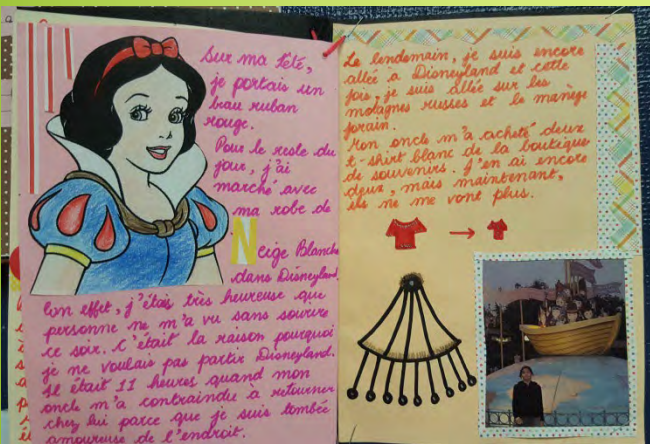 Sur ma tété,
je portais un
beau ruban
rouge.
Pour le reste du
jour, j'ai
marché avec
ma robe de
Neige Blanche
dans Disneyland
En effet, j'étais très heureuse que
personne ne m'a vu sans sourire
ce soir. C'était la raison pourquoi
je ne voulais pas partir Disneyland.
Il était 11 heures quand mon
oncle m'a contraindu à retourner
chez lui parce que je suis tombée
amoureuse de l'endroit.
Le lendemain, je suis encore
allée a Disneyland et cette
fois, je suis allée sur les
motagnes russes et le manège
forain.
Mon oncle m'a acheté deux
t-shirt blanc de la boutique
de souvenirs. J'en ai encore
deux, mais maintenant,
ils ne me vont plus.